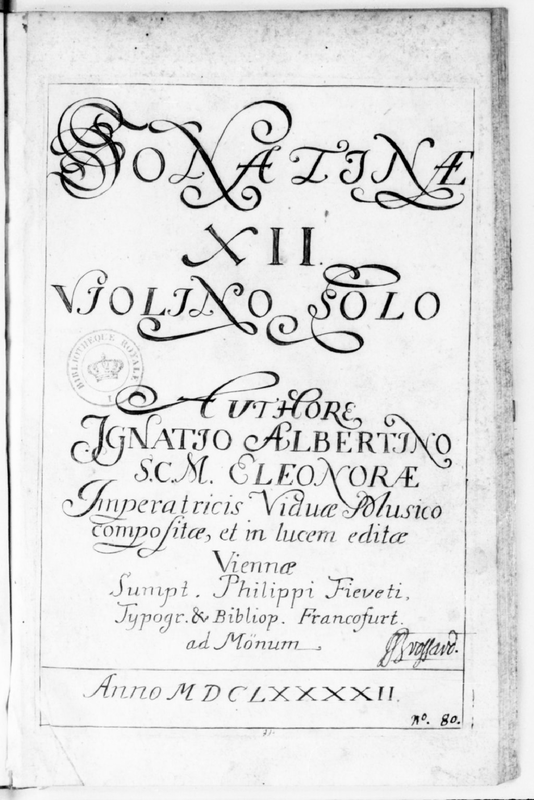 SONATINÆ
XII.
VIOLINO SOLO
BIBLIOTHEQUE ROYALE
AUTHORE
IGNATIO ALBERTINO
S.C.M. ELEONORÆ
Imperatricis Viduæ Musico
compositæ, et in lucem editæ
Viennæ
Sumpt. Philippi Fieveti,
Typogr. & Bibliop. Francofurt.
ad Mönum.
Brossard.
Anno MDCLXXXXII.
nº. 80.